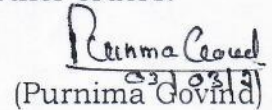 Purnima Govind
03/03/21
(Purnima Govind)